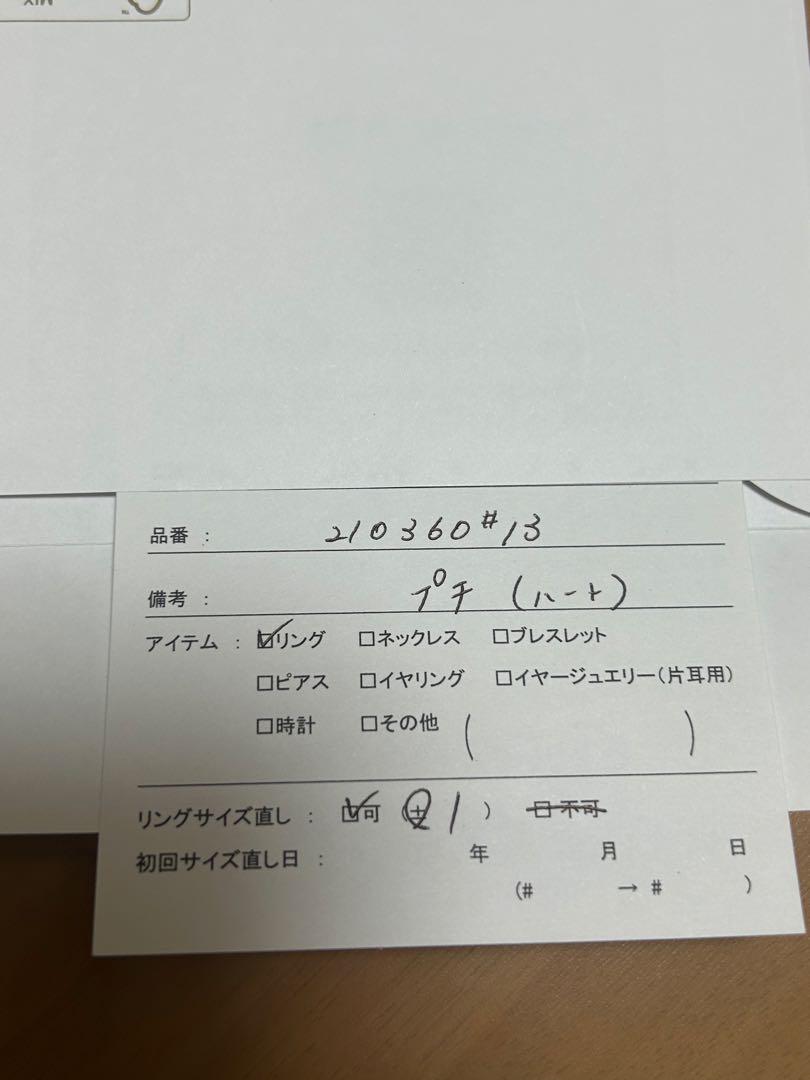 MIX
品番 : 210360#13
備考 : プチ (ハート)
アイテム : ☑リング □ネックレス □ブレスレット
□ピアス □イヤリング □イヤージュエリー(片耳用)
□時計 □その他 ( )
リングサイズ直し : ☑可 (± 1 ) □不可
初回サイズ直し日 : 年 月 日
(# → # )